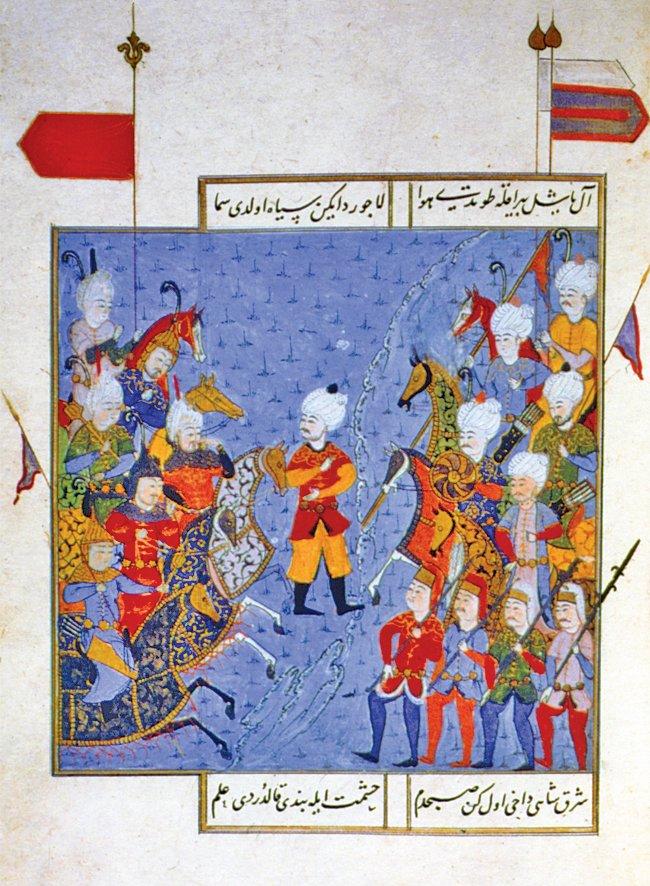 آل بیراقله طوندی هوا
لاجورد ایکن سیاه اولدی سما
شرق شاهی داخی اول کن صبحدم
حشمت ایله بندی قالدردی علم